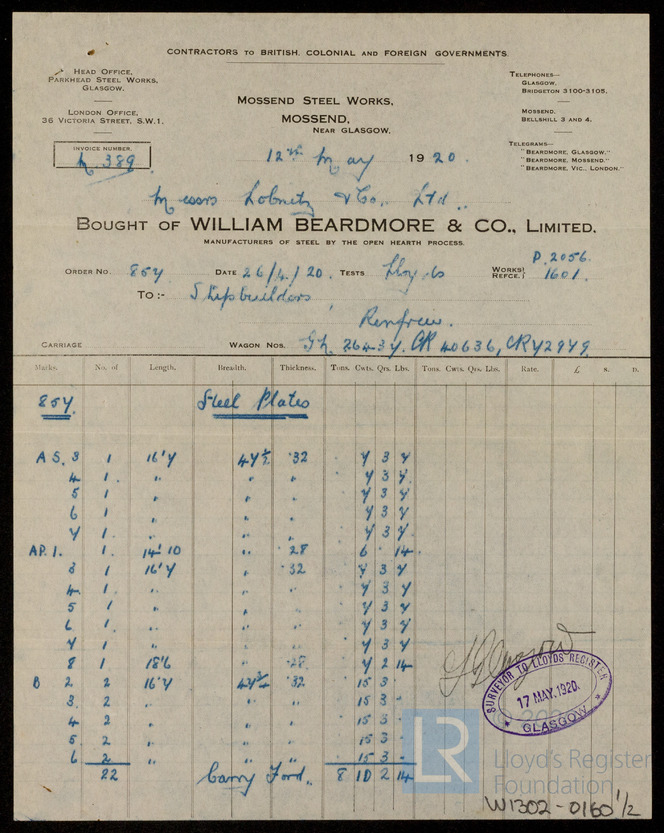 CONTRACTORS TO BRITISH, COLONIAL AND FOREIGN GOVERNMENTS.
HEAD OFFICE,
PARKHEAD STEEL WORKS,
GLASGOW.
LONDON OFFICE,
36 VICTORIA STREET, S.W.1.
INVOICE NUMBER.
M. 389
MOSSEND STEEL WORKS,
MOSSEND,
NEAR GLASGOW.
TELEPHONES—
GLASGOW.
BRIDGETON 3100-3105.
MOSSEND.
BELLSHILL 3 AND 4.
TELEGRAMS—
"BEARDMORE, GLASGOW."
"BEARDMORE, MOSSEND."
"BEARDMORE, VIC., LONDON."
12th May 1920.
Messrs Lobnitz & Co., Ltd.
BOUGHT OF WILLIAM BEARDMORE & CO., LIMITED,
MANUFACTURERS OF STEEL BY THE OPEN HEARTH PROCESS.
ORDER NO. 857 DATE 26/4/20. TESTS Lloyds WORKS' REFCE. P. 2056. 1601.
TO:- Shipbuilders,
Renfrew.
CARRIAGE WAGON NOS. 26437. CR 40636, CR 72979.
Marks. No. of Length. Breadth. Thickness. Tons. Cwts. Qrs. Lbs. Tons. Cwts. Qrs. Lbs. Rate. £ s. D.
857. Steel Plates
A S. 3 1 16'7 47½ .32 7 3 7
4 1. " " " 7 3 7
5 1 " " " 7 3 7
6 1 " " " 7 3 7
7 1. " " " 7 3 7
AP. 1. 1. 14'10 " .28 6 . 14
3 1 16'7 " .32 7 3 7
4. 1. " " " 7 3 7
5 1 " " " 7 3 7
6 1. " " " 7 3 7
7 1 " " " 7 3 7
8 1 18'6 " .28 7 2 14
B 2. 2 16'7 .32 15 3 -
3. 2 " " " 15 3 -
4 2 " " " 15 3 -
5. 2 " " " 15 3 -
6 2 " " " 15 3 -
22 Carry Ford.. 8 10 2 14
SURVEYOR TO LLOYDS REGISTER
17 MAY. 1920.
GLASGOW
LR
Lloyd's Register
Foundation
W1302-0160 1/2